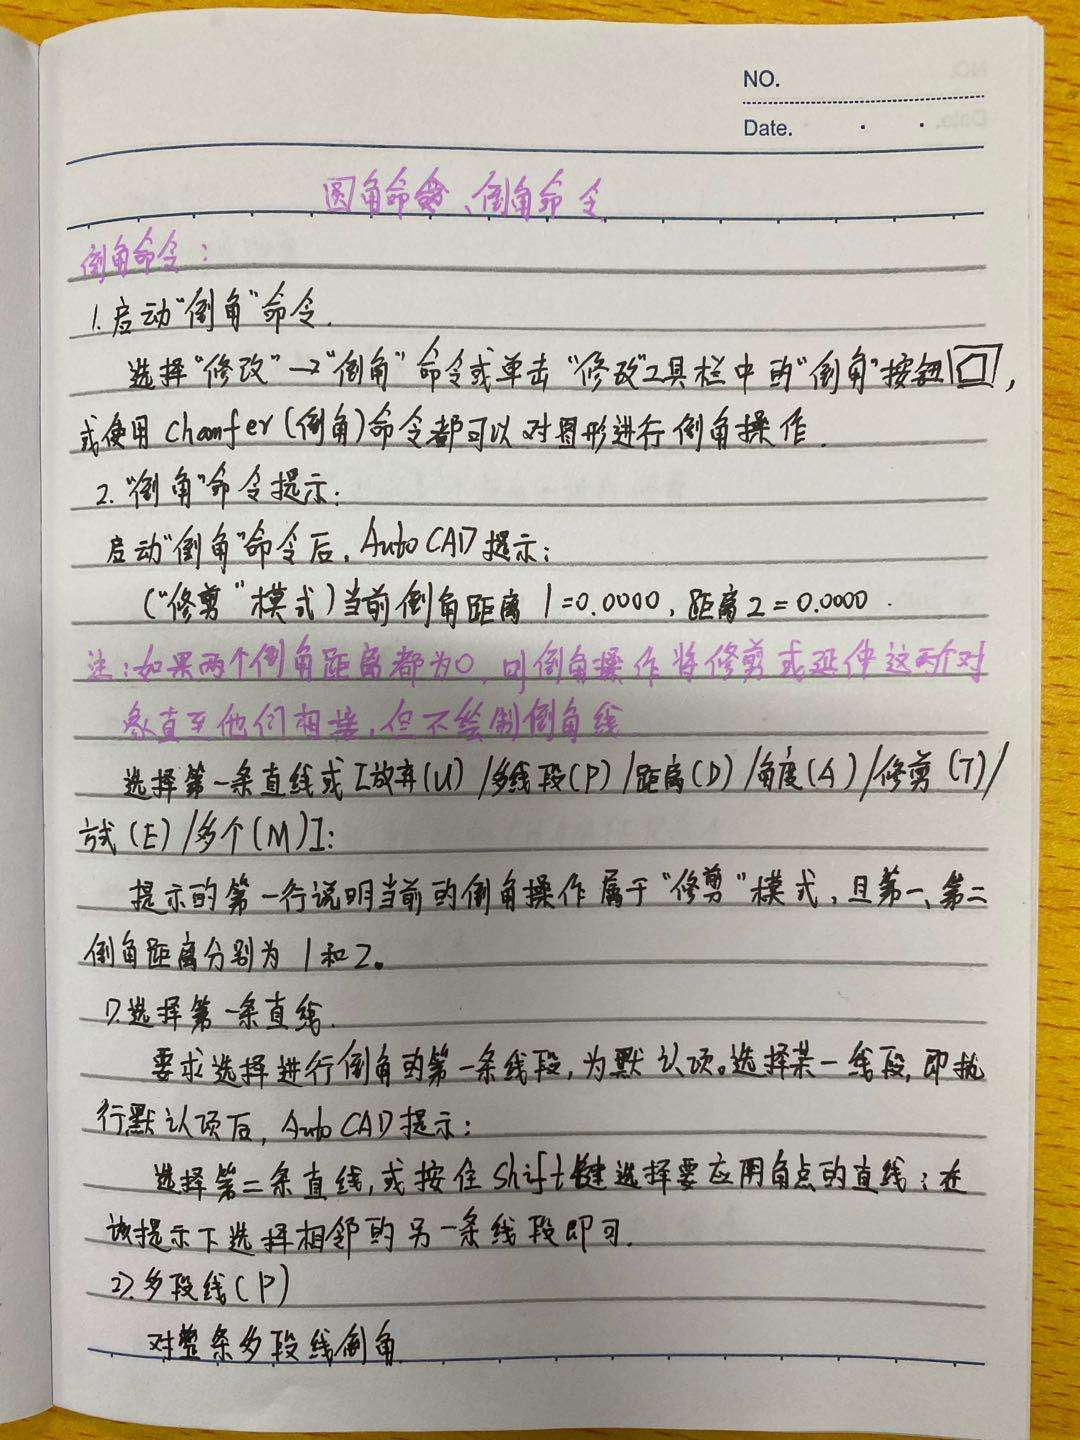 NO.
Date. . .
圆角命令、倒角命令
倒角命令：
1.启动"倒角"命令.
选择"修改"→"倒角"命令或单击"修改"工具栏中的"倒角"按钮,
或使用Chamfer(倒角)命令都可以对图形进行倒角操作.
2."倒角"命令提示:
启动"倒角"命令后,AutoCAD提示:
("修剪"模式)当前倒角距离1=0.0000,距离2=0.0000.
注:如果两个倒角距离都为0,则倒角操作将修剪或延伸这两个对
象直至他们相接,但不绘制倒角线
选择第一条直线或[放弃(U)/多线段(P)/距离(D)/角度(A)/修剪(T)/
方式(E)/多个(M)]:
提示的第一行说明当前的倒角操作属于"修剪"模式,且第一、第二
倒角距离分别为1和2。
1).选择第一条直线.
要求选择进行倒角的第一条线段,为默认项。选择某一线段,即执
行默认项后,AutoCAD提示:
选择第二条直线,或按住Shift键选择要应用角点的直线;在
该提示下选择相邻的另一条线段即可.
2).多段线(P)
对整条多段线倒角.